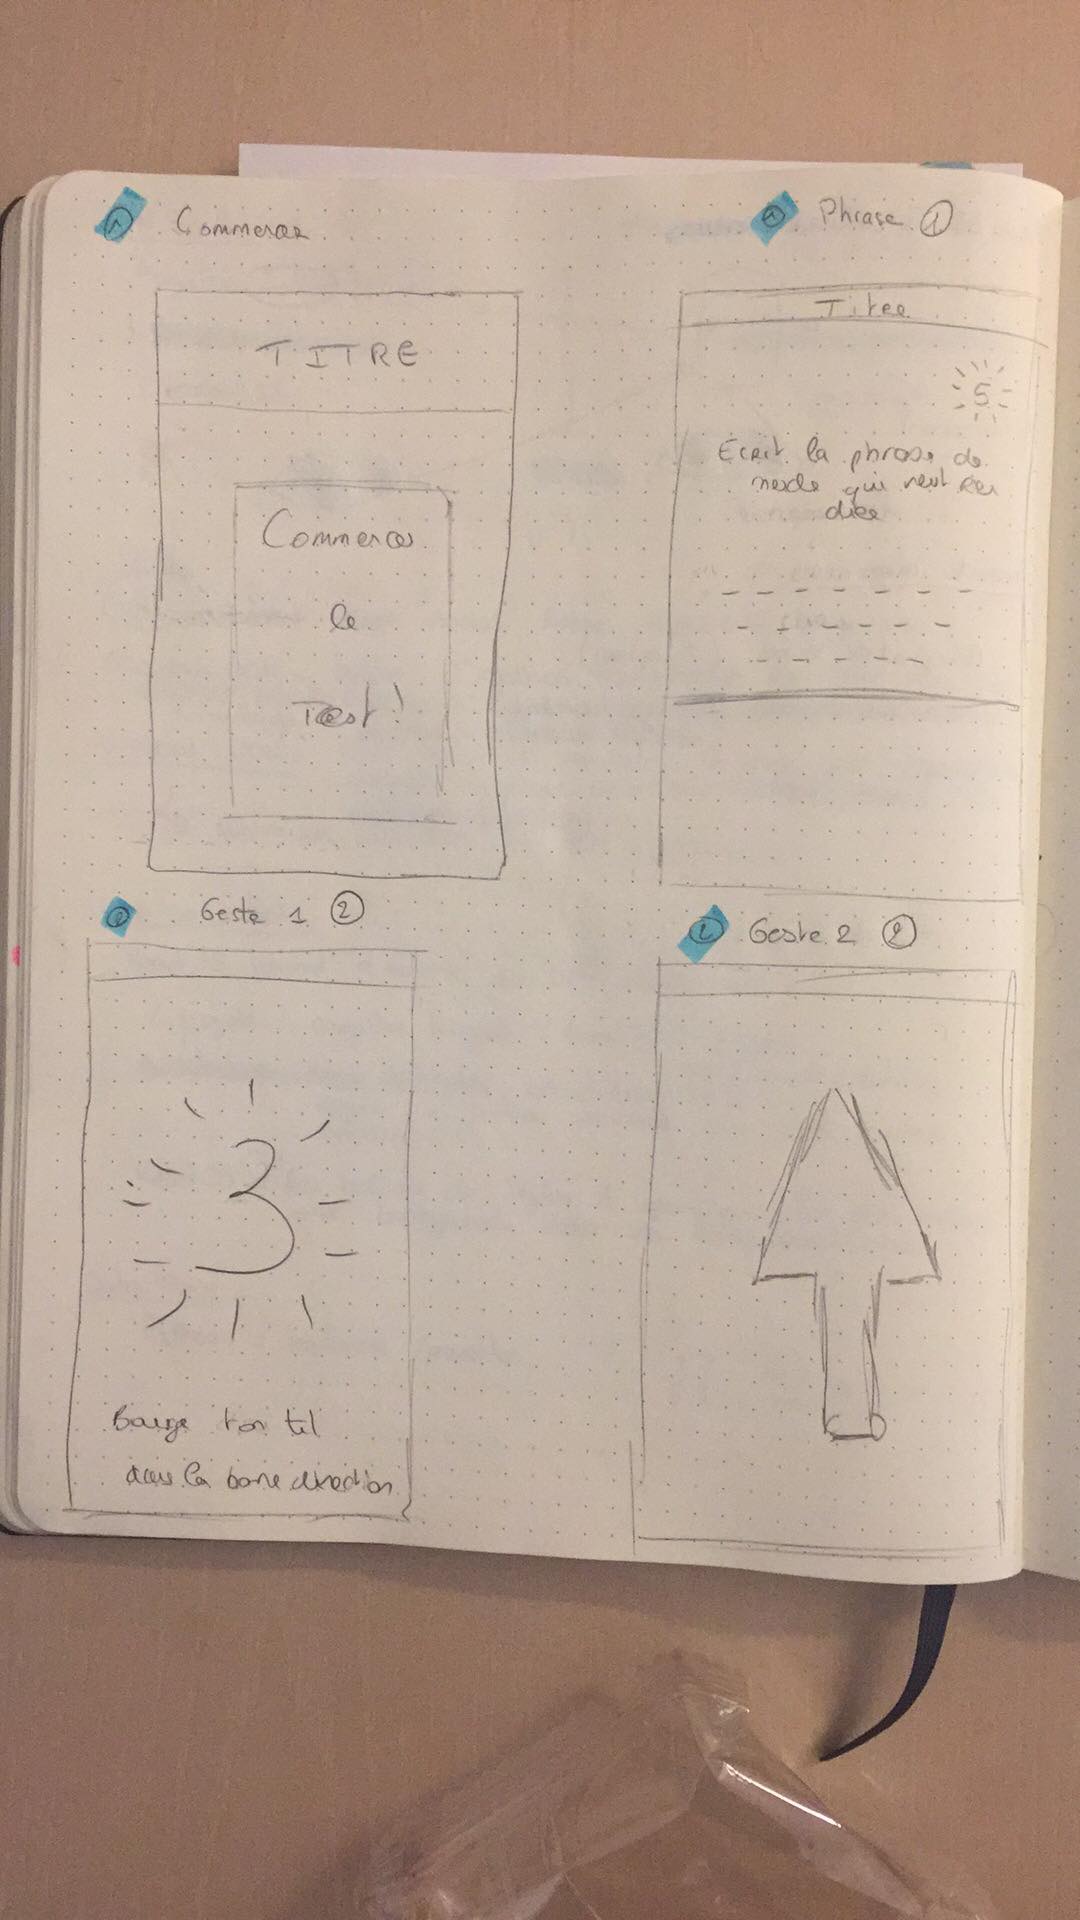 1 Commencer
TITRE
Commencer
le
Test!
1 Phrase 1
Titre
5
Ecrit la phrase de
merde qui veut rien
dire
2 Geste 1 2
3
Bouge ton tel
dans la bonne direction
2 Geste 2 2